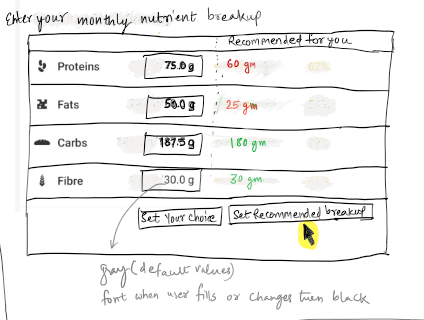 Enter your monthly nutrient breakup
Recommended for you
Proteins 75.0 g 60 gm
Fats 50.0 g 25 gm
Carbs 187.5 g 180 gm
Fibre 30.0 g 30 gm
Set Your choice Set Recommended breakup
gray (default values)
font when user fills or changes then black